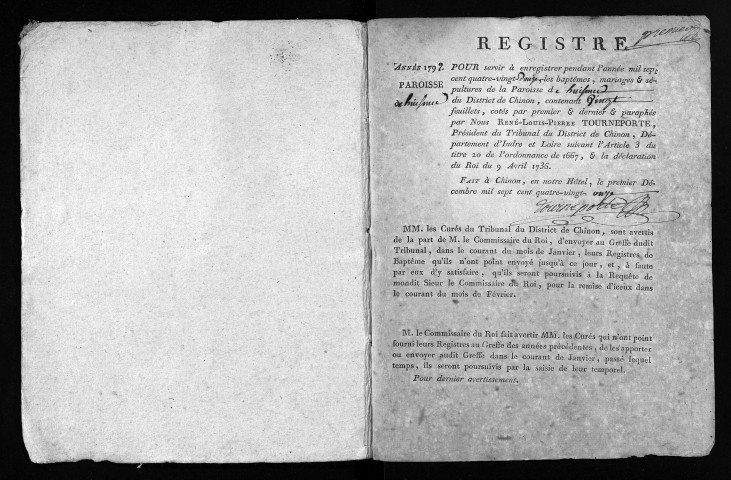 REGISTRE
premier
ANNÉE 1792.
PAROISSE
de huismes
POUR servir à enregistrer pendant l'année mil sept
cent quatre-vingt-douze les baptêmes, mariages & sé-
pultures de la Paroisse de huismes
du District de Chinon, contenant vingt
feuillets, cotés par premier & dernier & paraphés
par Nous RENÉ-LOUIS-PIERRE TOURNEPORTE,
Président du Tribunal du District de Chinon, Dé-
partement d'Indre et Loire suivant l'Article 3 du
titre 20 de l'ordonnance de 1667, & la déclaration
du Roi du 9 Avril 1736.
FAIT à Chinon, en notre Hôtel, le premier Dé-
cembre mil sept cent quatre-vingt-onze
Tourneporte
MM. les Curés du Tribunal du District de Chinon, sont avertis
de la part de M. le Commissaire du Roi, d'envoyer au Greffe dudit
Tribunal, dans le courant du mois de Janvier, leurs Registres de
Baptême qu'ils n'ont point envoyé jusqu'à ce jour, et, à faute
par eux d'y satisfaire, qu'ils seront poursuivis à la Requête de
mondit Sieur le Commissaire du Roi, pour la remise d'iceux dans
le courant du mois de Février.
M. le Commissaire du Roi fait avertir MM. les Curés qui n'ont point
fourni leurs Registres au Greffe des années précédentes, de les apporter
ou envoyer audit Greffe dans le courant de Janvier, passé lequel
temps, ils seront poursuivis par la saisie de leur temporel.
Pour dernier avertissement.